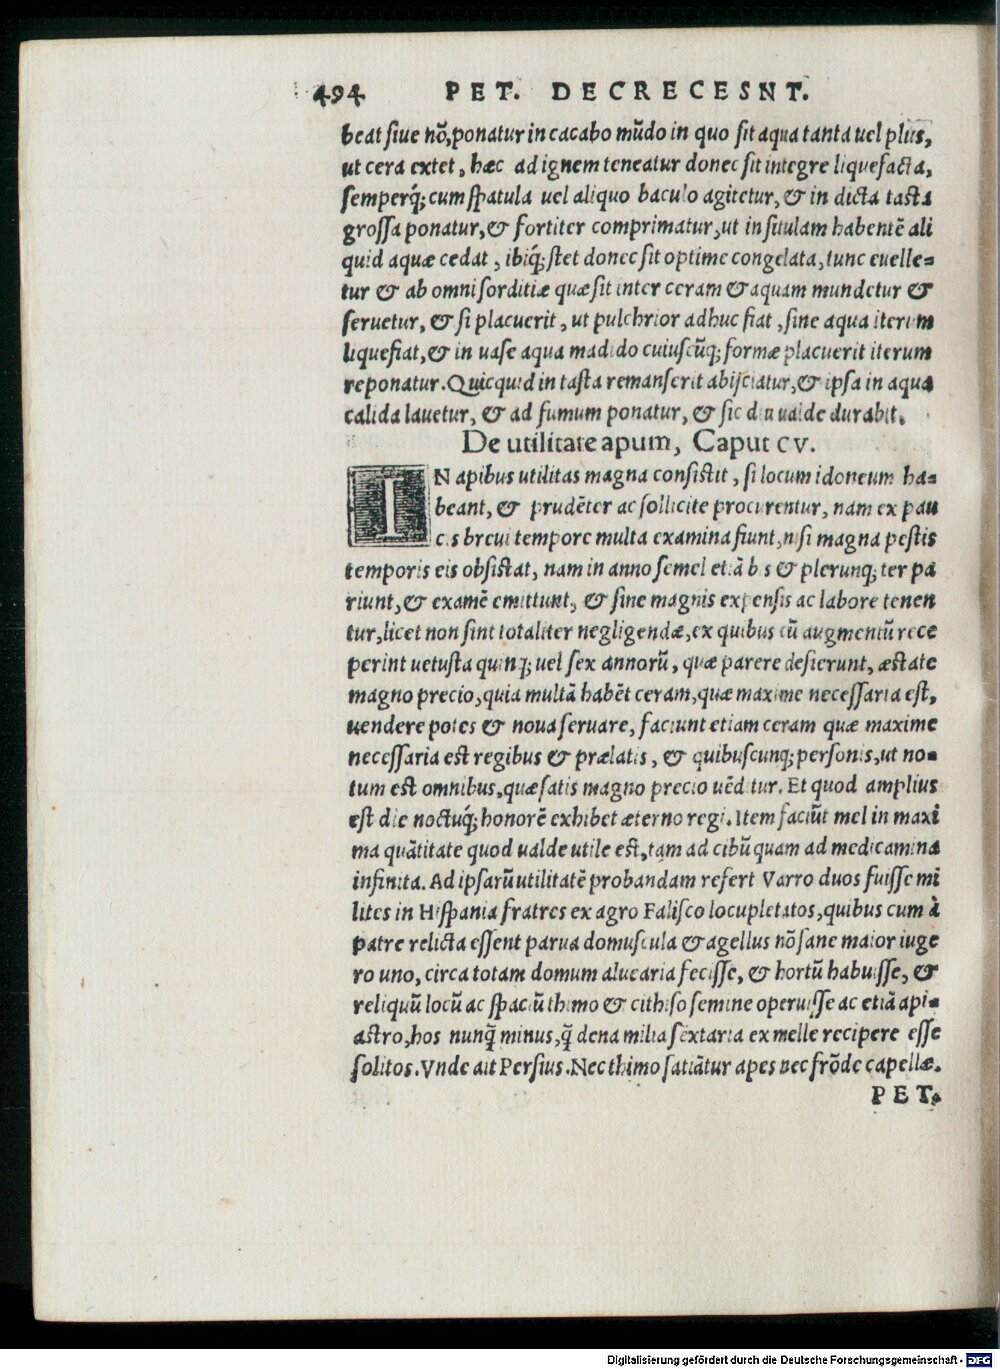 494 PET. DECRECESNT.
beat siue nõ, ponatur in cacabo mũdo in quo sit aqua tanta uel plus,
ut cera extet, hæc ad ignem teneatur donec sit integre liquefacta,
semperq́; cum spatula uel aliquo baculo agitetur, & in dicta tasta
grossa ponatur, & fortiter comprimatur, ut in situlam habentẽ ali
quid aquæ cedat, ibiq́; stet donec sit optime congelata, tunc euelle=
tur & ab omni sorditiæ quæ sit inter ceram & aquam mundetur &
seruetur, & si placuerit, ut pulchrior adhuc fiat, sine aqua iterum
liquefiat, & in uase aqua madido cuiuscũq; formæ placuerit iterum
reponatur. Quicquid in tasta remanserit abijciatur, & ipsa in aqua
calida lauetur, & ad fumum ponatur, & sic diu ualde durabit.
De utilitate apum, Caput cv.
IN apibus utilitas magna consistit, si locum idoneum ha=
beant, & prudẽter ac sollicite procurentur, nam ex pau
cis breui tempore multa examina fiunt, nisi magna pestis
temporis eis obsistat, nam in anno semel etiã bis & plerunq; ter pa
riunt, & examẽ emittunt, & sine magnis expensis ac labore tenen
tur, licet non sint totaliter negligendæ, ex quibus cũ augmentũ rece
perint uetusta quinq; uel sex annorũ, quæ parere desierunt, æstate
magno precio, quia multã habẽt ceram, quæ maxime necessaria est,
uendere potes & noua seruare, faciunt etiam ceram quæ maxime
necessaria est regibus & prælatis, & quibuscunq; personis, ut no=
tum est omnibus, quæ satis magno precio uẽditur. Et quod amplius
est die noctuq́; honorẽ exhibet æterno regi. Item faciũt mel in maxi
ma quãtitate quod ualde utile est, tam ad cibũ quam ad medicamina
infinita. Ad ipsarũ utilitatẽ probandam refert Varro duos fuisse mi
lites in Hispania fratres ex agro Falisco locupletatos, quibus cum à
patre relicta essent parua domuscula & agellus nõ sane maior iuge
ro uno, circa totam domum aluearia fecisse, & hortũ habuisse, &
reliquũ locũ ac spaciũ thimo & cithiso semine operuisse ac etiã api=
astro, hos nunq̃ minus, q̃ dena milia sextaria ex melle recipere esse
solitos. Vnde ait Persius. Nec thimo satiãtur apes nec frõde capellæ.
PET.
Digitalisierung gefördert durch die Deutsche Forschungsgemeinschaft - DFG